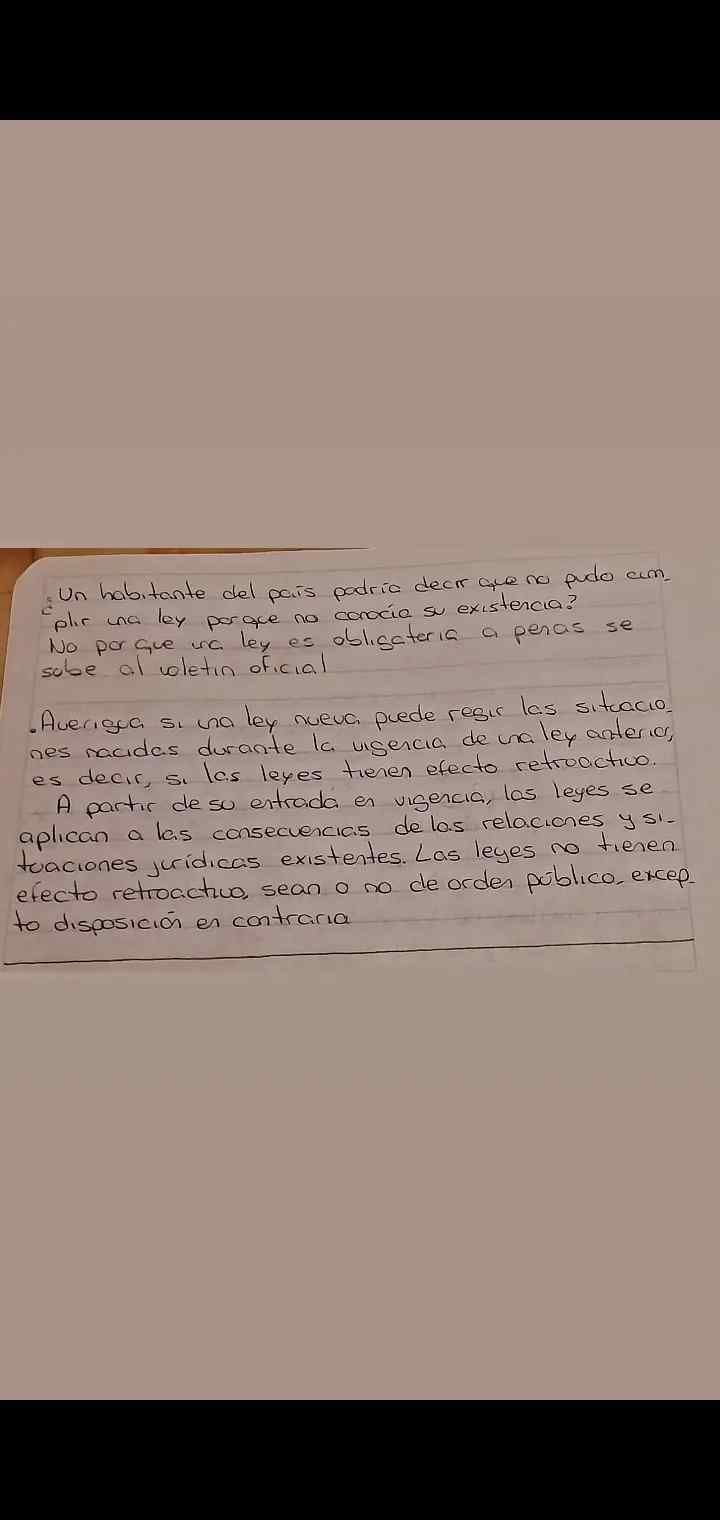 ¿Un habitante del país podría decir que no pudo cum_
plir una ley porque no conocía su existencia?
No por que una ley es obligatoria a penas se
sube al voletin oficial
.Averigua si una ley nueva puede regir las situacio_
nes nacidas durante la vigencia de una ley anterior,
es decir, si las leyes tienen efecto retroactivo.
A partir de su entrada en vigencia, las leyes se
aplican a las consecuencias de las relaciones y si-
tuaciones jurídicas existentes. Las leyes no tienen
efecto retroactivo, sean o no de orden público, excep_
to disposición en contraria